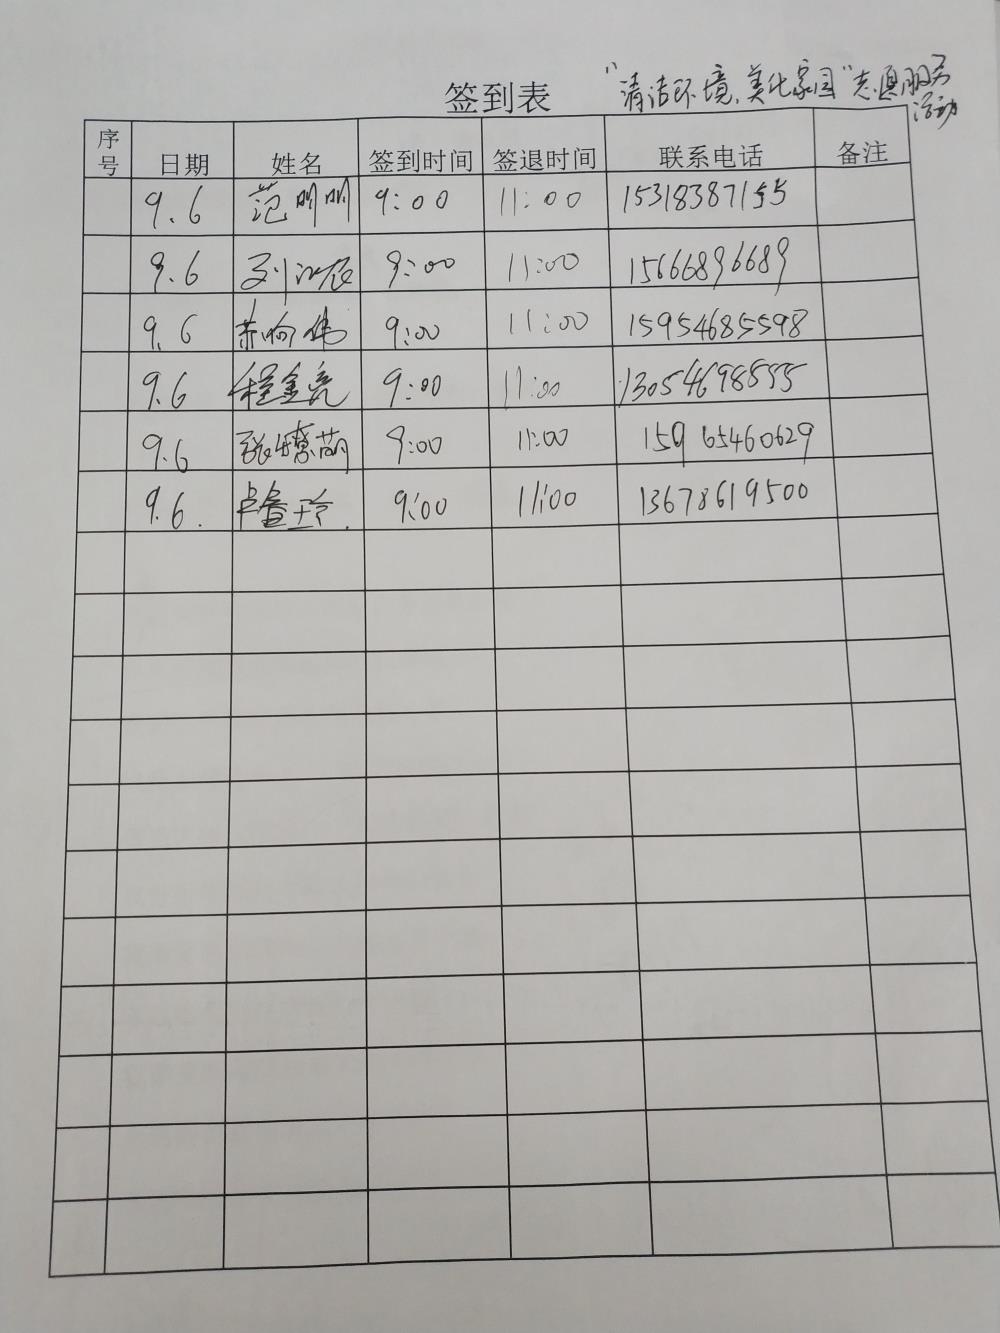 签到表 "清洁环境、美化家园"志愿服务
活动
序号 日期 姓名 签到时间 签退时间 联系电话 备注
9.6 范明明 9:00 11:00 15318387155
9.6 刘 9:00 11:00 15666896689
9.6 9:00 11:00 15954685598
9.6 程金亮 9:00 11:00 13054698555
9.6 张萌 9:00 11:00 15965460629
9.6. 卢鲁玲. 9:00 11:00 13678619500